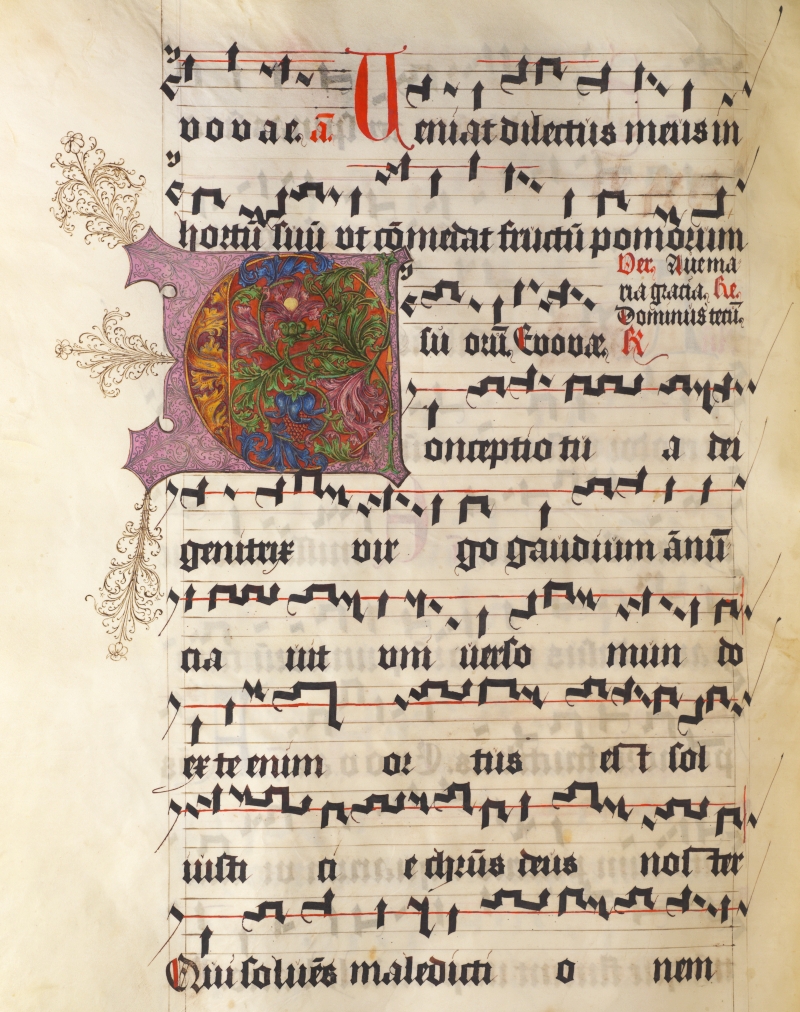 vovae. a̅. Veniat dilectus meus in
hortū suū vt cōmedat fructū pomorum
Ver. Aue ma
ria gracia. Re.
Dominus tecū.
su orū, Euovæ, R
Conceptio tu a dei
genitrix vir go gaudium ānū
cia uit vni uerso mun do
ex te enim or tus est sol
iusti ci e chrūs deus noster
Qui soluēs maledicti o nem